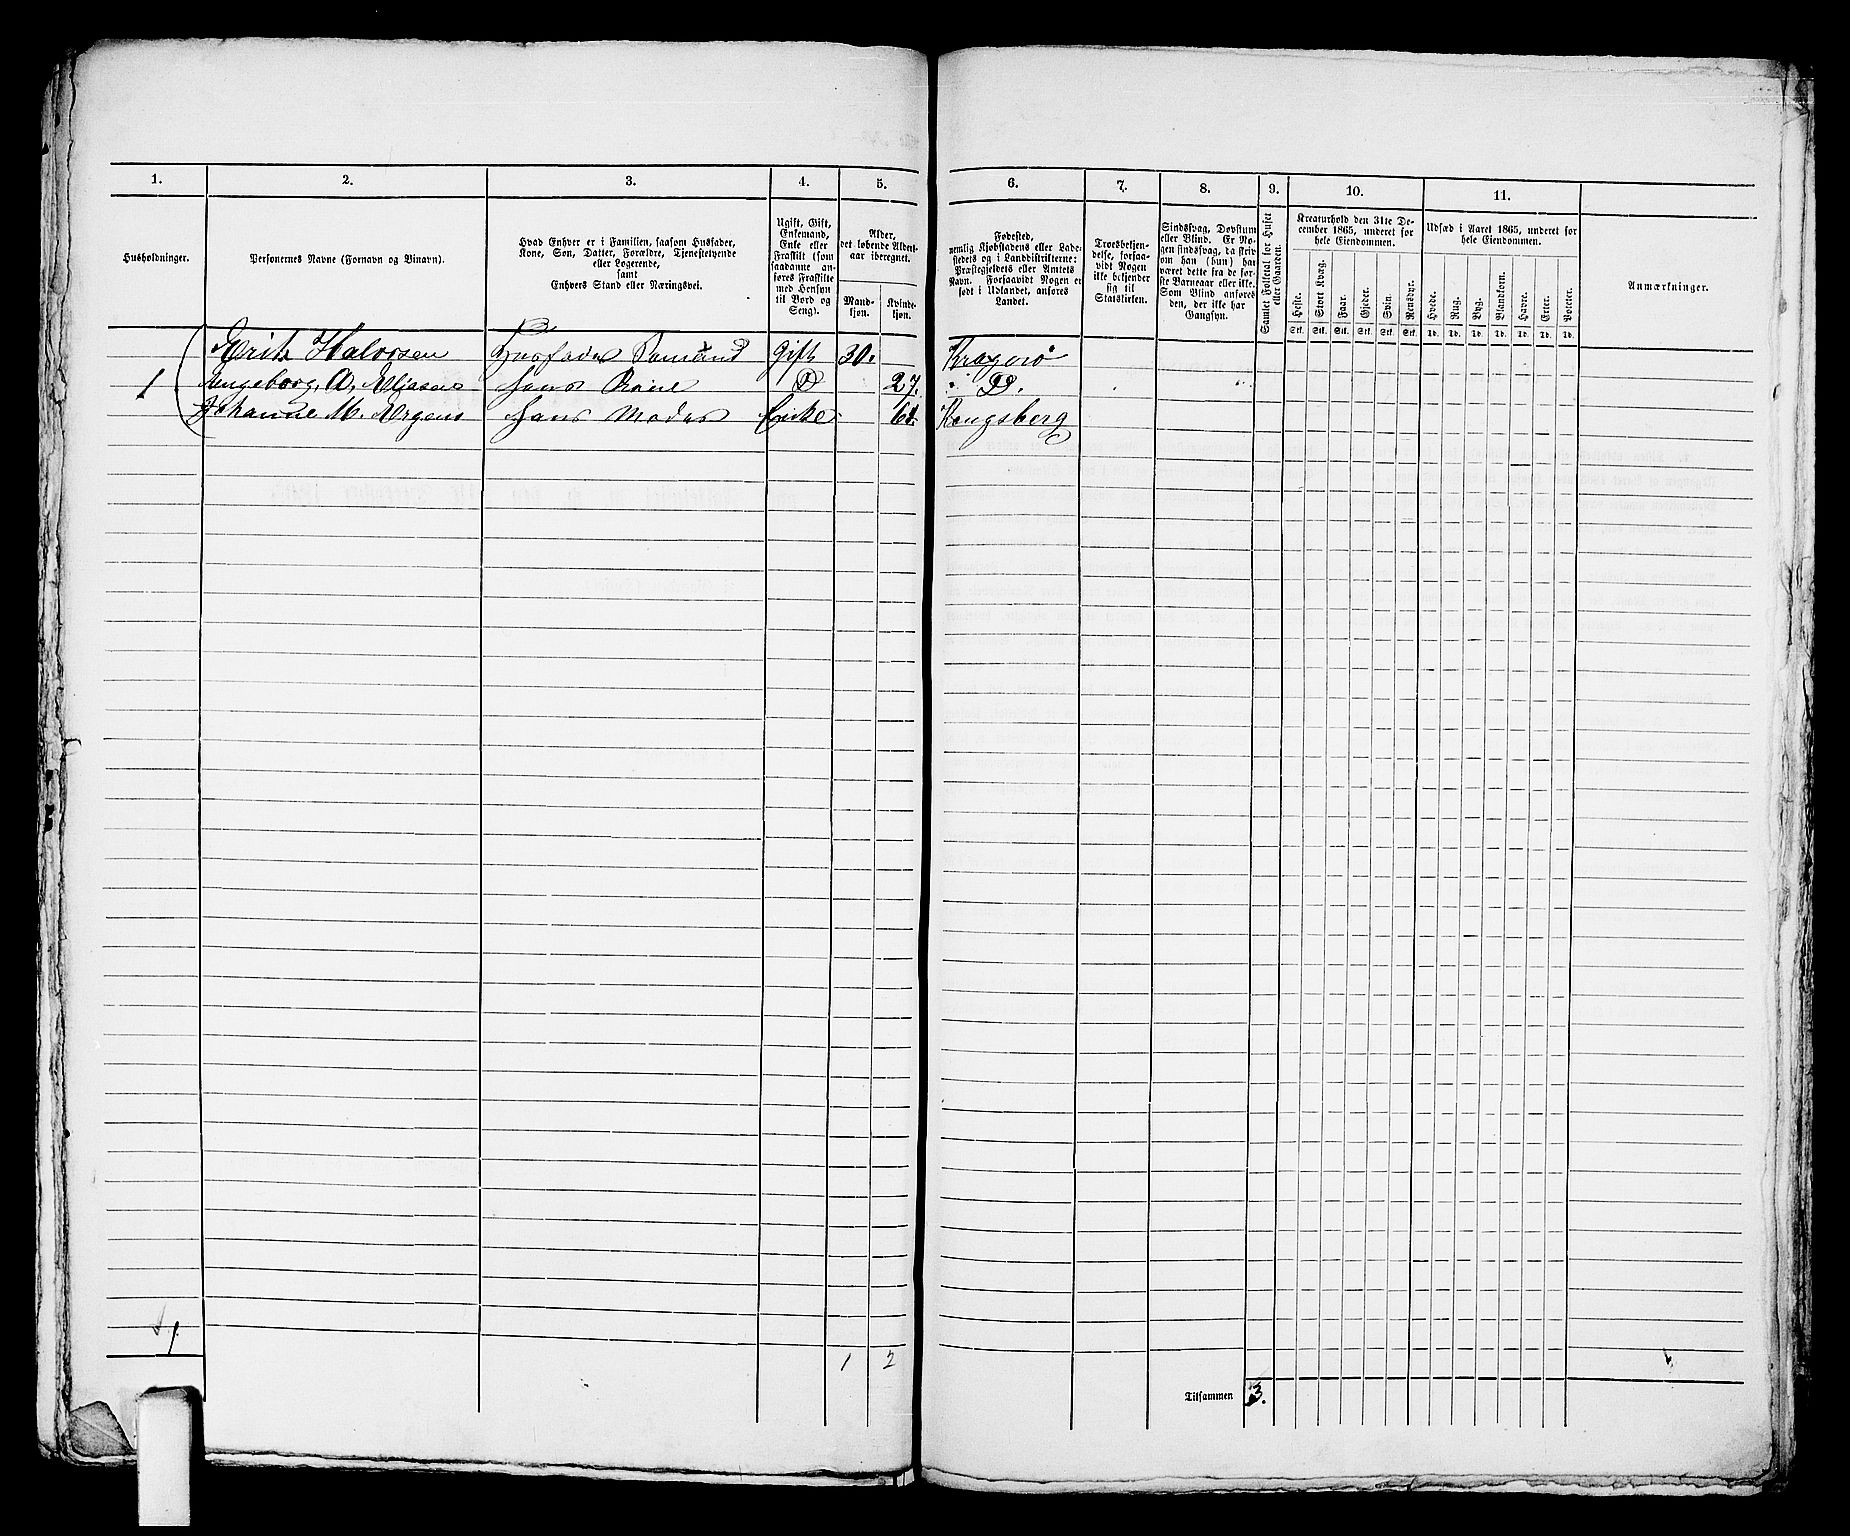 1.
2.
3.
4.
5.
6.
7.
8.
9.
10.
11.
Husholdninger.
Personernes Navne (Fornavn og Binavn).
Hvad Enhver er i Familien, saasom Husfader,
Kone, Søn, Datter, Forældre, Tjenestetyende
eller Logerende,
samt
Enhvers Stand eller Næringsvei.
Ugift, Gift,
Enkemand,
Enke eller
Fraskilt (som
saadanne an-
føres Fraskilte
med Hensyn
til Bord og
Seng).
Alder,
det løbende Alders-
aar iberegnet.
Mand-
kjøn.
Kvinde-
kjøn.
Fødested,
nemlig Kjøbstadens eller Lade-
stedets og i Landdistrikterne:
Præstegjeldets eller Amtets
Navn. Forsaavidt Nogen er
født i Udlandet, anføres
Landet.
Troesbekjen-
delse, forsaa-
vidt Nogen
ikke bekjender
sig til
Statskirken.
Sindssvag, Døvstum
eller Blind. Er No-
gen sindssvag, da skriv
om han (hun) har
været dette fra de før-
ste Barneaar eller ikke.
Som Blind anføres
den, der ikke har
Gangsyn.
Samlet Folketal for Huset
eller Gaarden.
Kreaturhold den 31te De-
cember 1865, underet for
hele Eiendommen.
Heste.
Stort Kvæg.
Faar.
Gjeder.
Svin.
Rensdyr.
Stk. Stk. Stk. Stk. Stk. Stk.
Udsæd i Aaret 1865, underet for
hele Eiendommen.
Hvede.
Rug.
Byg.
Blandkorn.
Havre.
Erter.
Poteter.
Td. Td. Td. Td. Td. Td. Td.
Anmærkninger.
Halvorsen Husfader Sømand Gift 30. Kragerø
1 Ingeborg A. Eliasen Hans Kone D 27. " D.
Johanne M. Hans Moder Enke Kongsberg
1
1 2
Tilsammen 3.